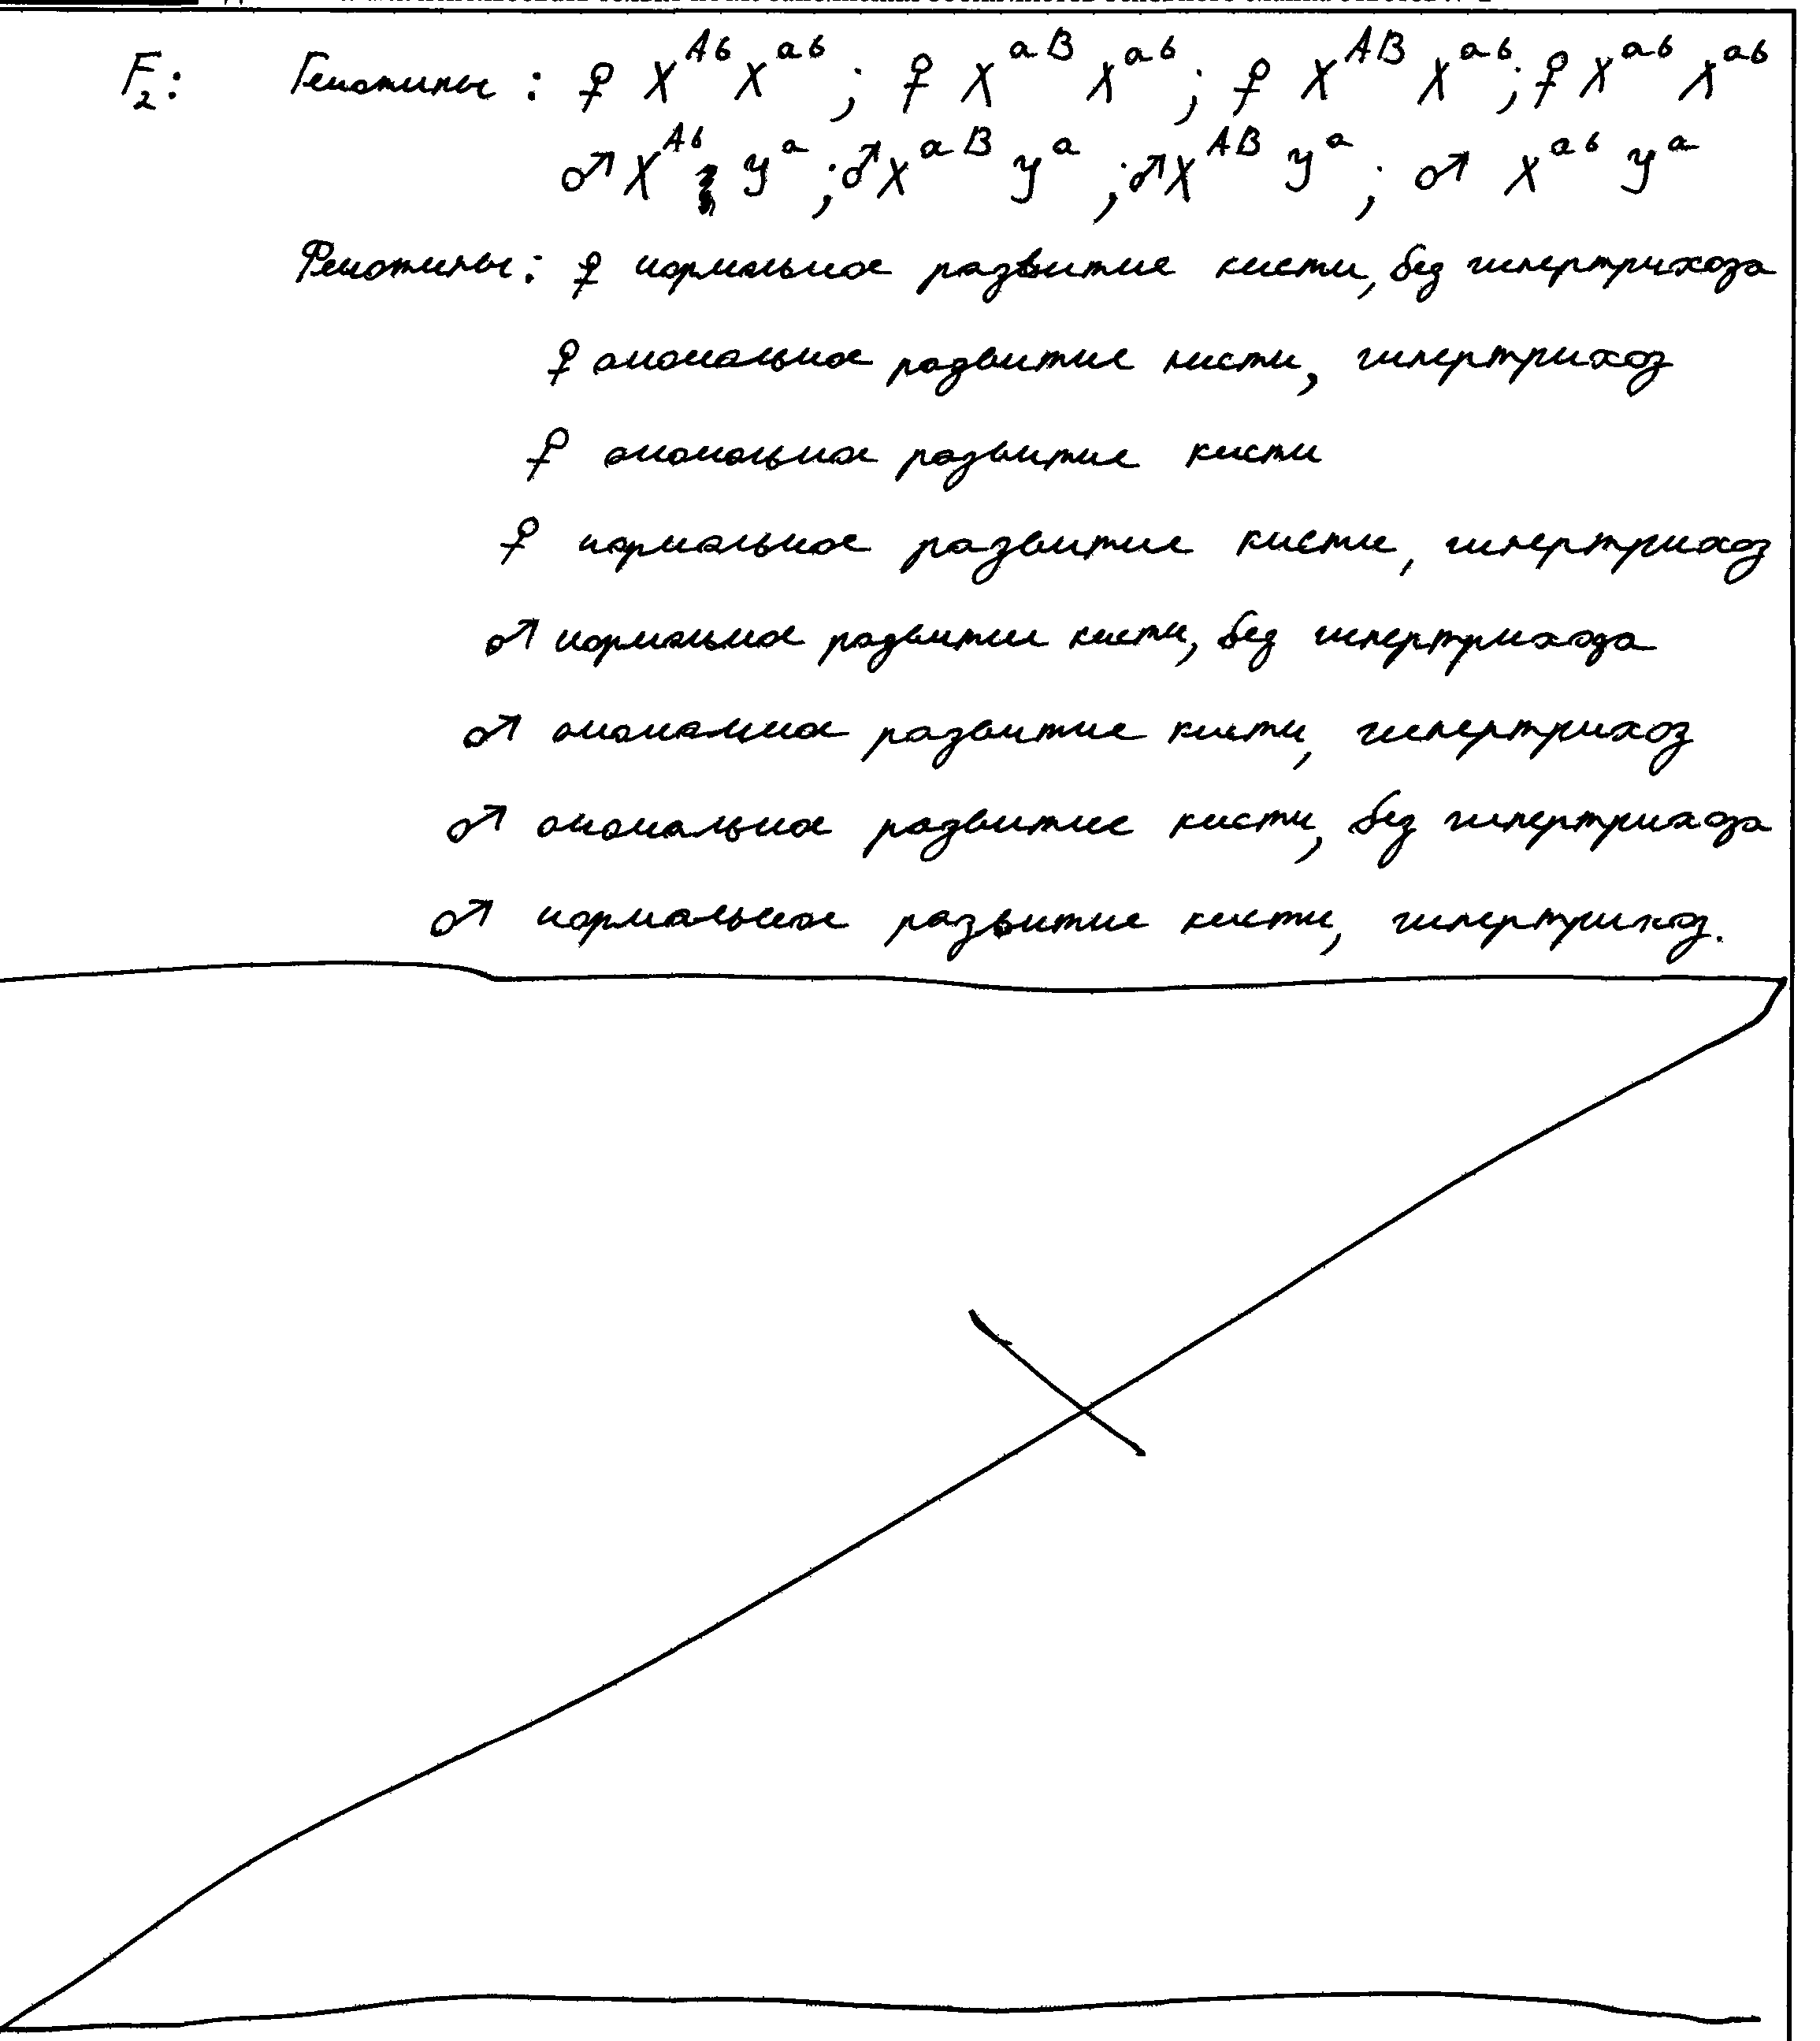 F₂: Генотипы : ♀ X^Aв X^ав ; ♀ X^аВ X^ав ; ♀ X^АВ X^ав ; ♀ X^ав X^ав
♂ X^Aв У^а ; ♂ X^аВ У^а ; ♂ X^АВ У^а ; ♂ X^ав У^а
Фенотипы : ♀ нормальное развитие кисти, без гипертрихоза
♀ аномальное развитие кисти, гипертрихоз
♀ аномальное развитие кисти
♀ нормальное развитие кисти, гипертрихоз
♂ нормальное развитие кисти, без гипертрихоза
♂ аномальное развитие кисти, гипертрихоз
♂ аномальное развитие кисти, без гипертрихоза
♂ нормальное развитие кисти, гипертрихоз.